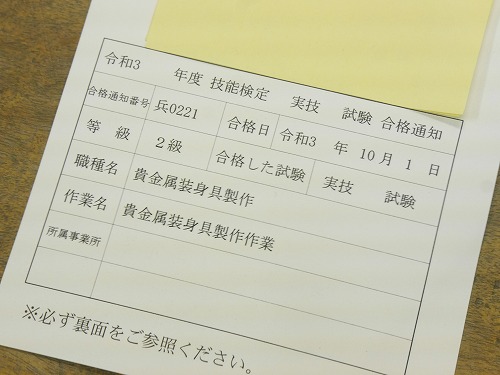 令和3 年度 技能検定 実技 試験 合格通知
合格通知番号 兵0221 合格日 令和3 年 10月 1 日
等 級 2級 合格した試験 実技 試験
職種名 貴金属装身具製作
作業名 貴金属装身具製作作業
所属事業所
※必ず裏面をご参照ください。